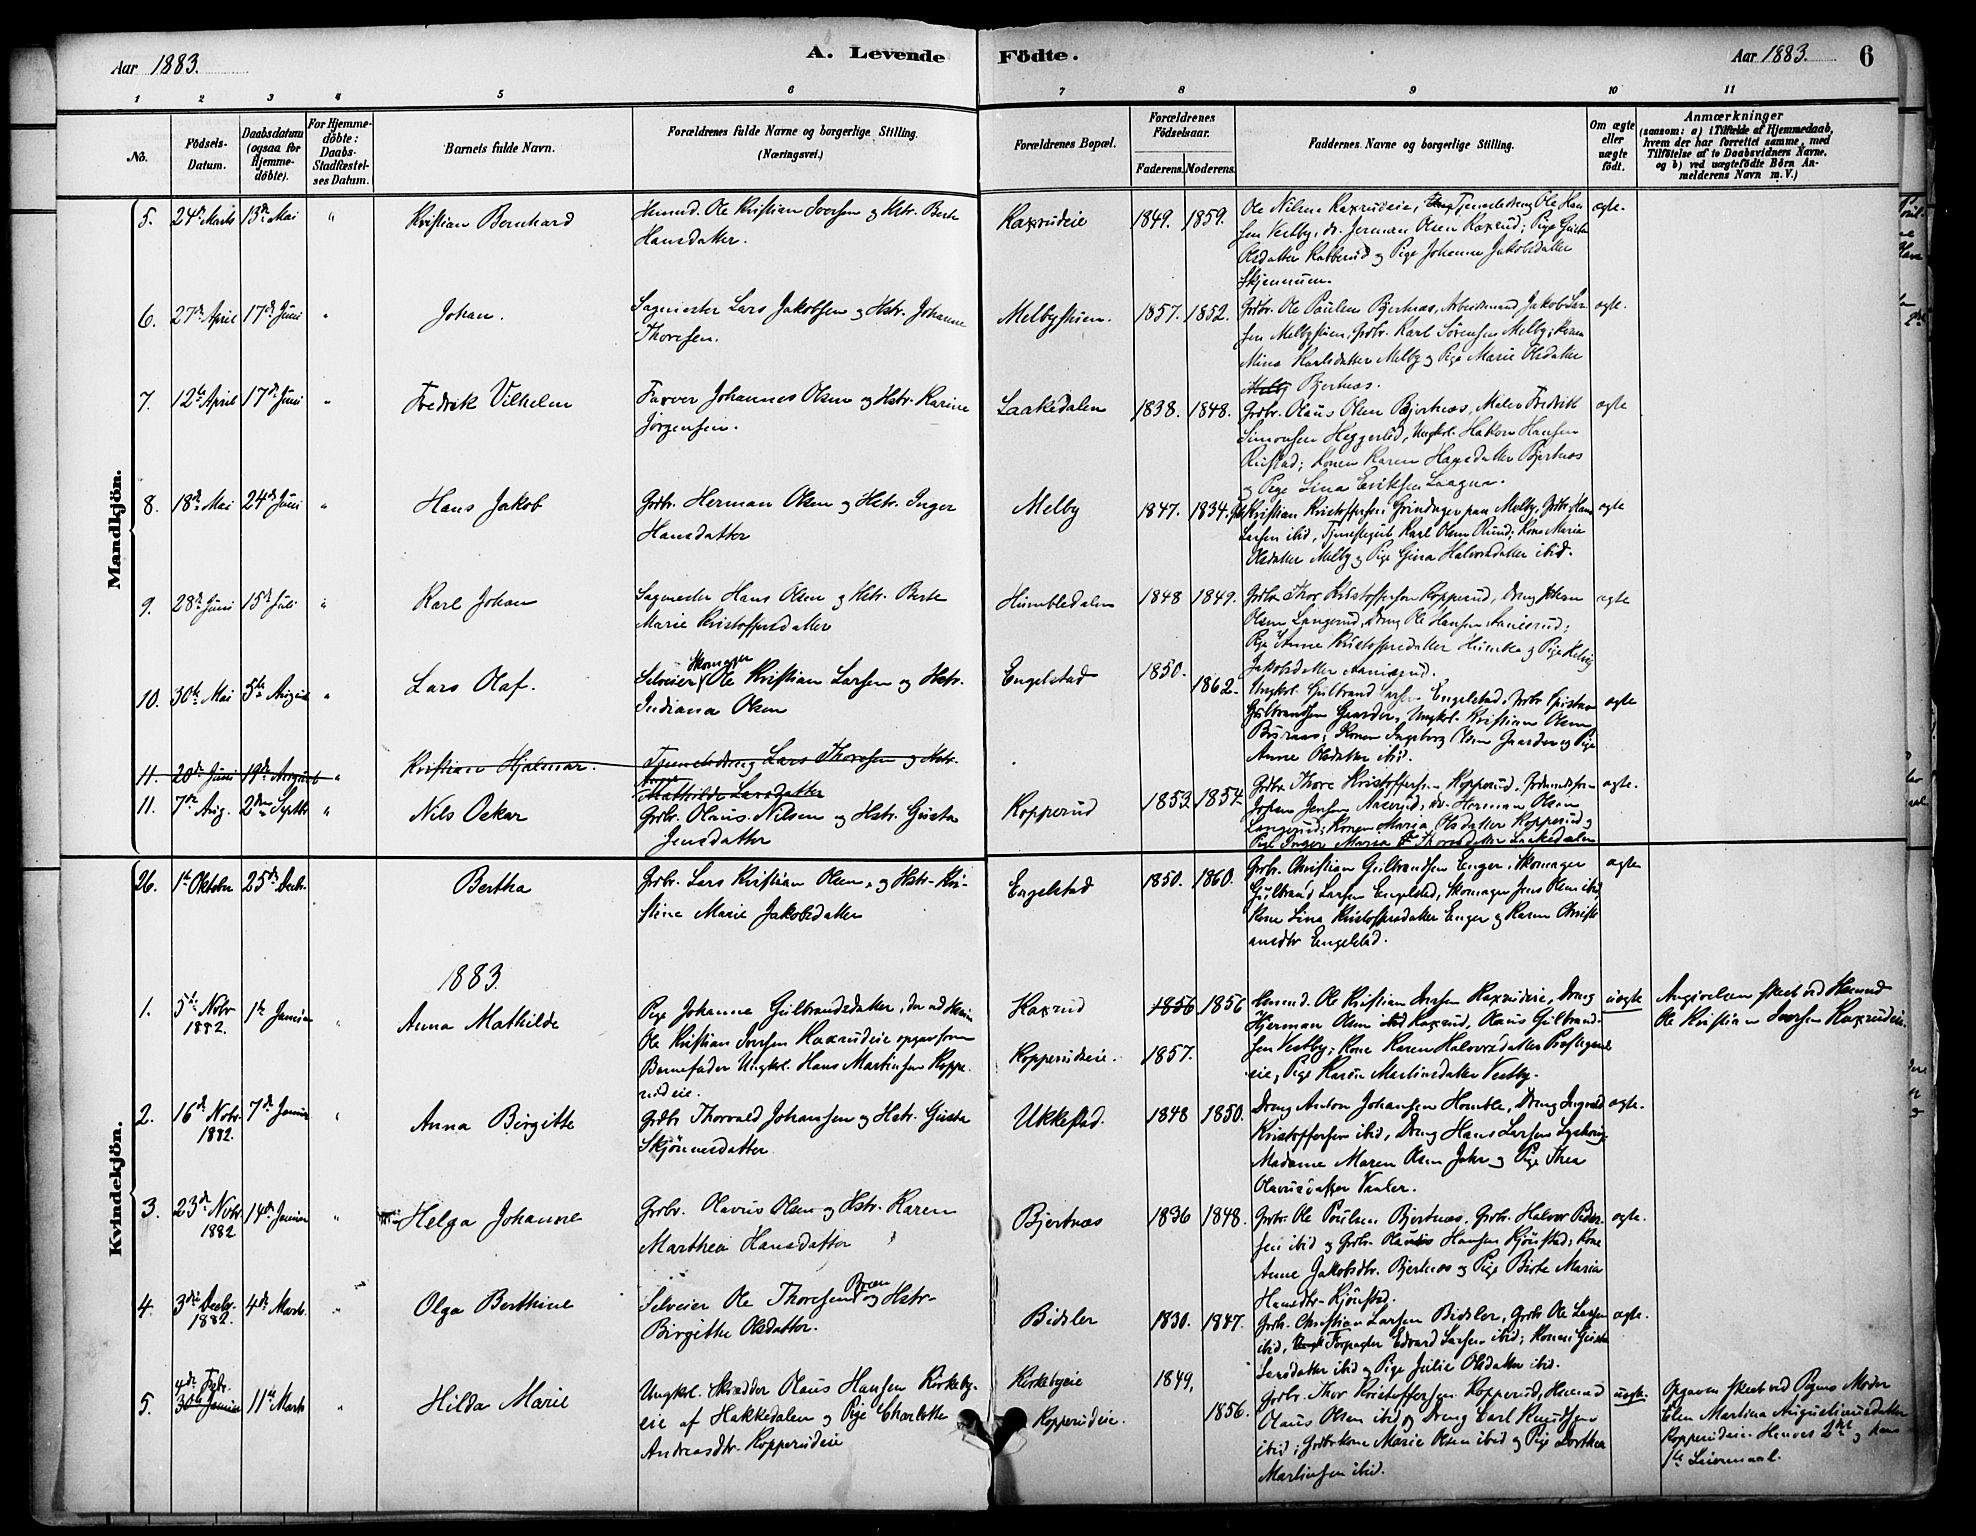 Aar 1883.
A. Levende Födte.
Aar 1883.
6
1 2 3 4 5 6 7 8 9 10 11
No.
Födsels-Datum.
Daabsdatum (ogsaa for Hjemme-döbte).
For Hjemme-döbte: Daabs-Stadfæstel-ses Datum.
Barnets fulde Navn.
Forældrenes fulde Navne og borgerlige Stilling.
(Næringsvei.)
Forældrenes Bopæl.
Forældrenes Födselsaar.
Faderens. Moderens.
Faddernes Navne og borgerlige Stilling.
Om ægte eller uægte födt.
Anmærkninger
(saasom: a) i Tilfælde af Hjemmedaab,
hvem der har forrettet samme, med
Tilföielse af to Daabsvidners Navne,
og b) ved uægtefödte Börn An-
melderens Navn m. V.)
Mandkjön.
5. 24de Marts 13de Mai " Kristian Bernhard
Husmd. Ole Kristian Iversen og Hstr. Berte
Hansdatter.
Raxrudeie 1849. 1859.
Ole Nilsen Raxrudeie, Tjenestedreng Ole Han
sen Vestby, do. Jerman Olsen Raxrud; Pige Gusta
Olsdatter Kabberud og Pige Johanne Jakobsdatter
Skjennum.
ægte.
6. 27de April 17de Juni " Johan.
Sagmester Lars Jakobsen og Hstr. Johanne
Thoresen.
Melbystuen. 1857. 1852.
Grdbr. Ole Paulsen Bjertnæs, Arbeidsmand Jakob Lar
sen Melbystuen, Grdbr. Karl Sörensen Melby; Kone
Mina Karlsdatter Melby og Pige Marie Olsdatter
Melby Bjertnæs.
ægte.
7. 12te April 17de Juni " Fredrik Vilhelm
Farver Johannes Olsen og Hstr. Karine
Jörgensen.
Laakedalen 1838. 1848.
Grdbr. Olaus Olsen Bjertnæs, Maler Fredrik
Simonsen Heggerlid, Ungkl. Hakon Hansen
Rustad; Konen Karen Hansdatter Bjertnæs
og Pige Lina Eriksen Laagna.
ægte
8. 18de Mai 24de Juni " Hans Jakob
Grdbr. Herman Olsen og Hstr. Inger
Hansdatter
Melby 1847. 1834.
Kristian Kristoffersen Grindager paa Melby, Grdbr. Hans
Larsen ibid, Tjenestegut Karl Olsen Rund; Kone Maria
Olsdatter Melby og Pige Gina Halvorsdatter ibid.
ægte
9. 28de Juni 15de Juli " Karl Johan
Sagmester Hans Olsen og Hstr. Berte
Marie Kristoffersdatter
Humbledalen 1848 1849.
Grdbr. Thor Kristoffersen Kopperud, Dreng Johan
Olsen Langerud, Dreng Ole Hansen Aamisrud;
Pige Anne Kristoffersdatter Humble og Pige Helvig
Jakobsdatter Aamisrud.
ægte
10. 30te Mai 5te August " Lars Olaf.
Selveier Skomager Ole Kristian Larsen og Hstr.
Indiana Olsen
Engelstad 1850. 1862.
Ungkl. Gulbrand Larsen Engelstad, Grdbr. Cristian
Gulbrandsen Gaarder, Ungkl. Kristian Olsen
Busnæs; Konen Ingeborg Olsen Gaarder og Pige
Anne Olsdatter ibid.
ægte
11. 20de Juni 19de August " Kristian Hjalmar.
Tjenestedreng Lars Thoresen og Hstr.
Mathilde Larsdatter
11. 7de Aug. 2den Septbr. " Nils Oskar
Grdbr. Olaus Nilsen og Hstr. Gusta
Jensdatter
Kopperud 1853. 1854.
Grdbr. Thore Kristoffersen Kopperud,
Johan Jensen Aaserud, do. Herman Olsen
Langerud; Konen Maria Olsdatter Kopperud og
Pige Inger Maria Thoresdatter Laakedalen
ægte.
Kvindekjön.
26. 1te Oktober 25de Decbr. Bertha
Grdbr. Lars Kristian Olsen, og Hstr. Kri-
stine Marie Jakobsdatter
Engelstad 1850. 1860.
Grdbr. Christian Gulbrandsen Enger, Skomager
Gulbrand Larsen Engelstad, Skomager Jens Olsen ibid,
Kone Lina Kristoffersdatter Enger og Karen Christi
ansdtr Engelstad.
ægte
1883.
1. 5te Novbr 1882. 1te Januar " Anna Mathilde
Pige Johanna Gulbrandsdatter, der ad
Ole Kristian Iversen Raxrudeie opgav som
Barnefader Ungkl. Hans Martinsen Koppe-
rudeie.
Raxrud 1856 1856
Kopperudeie. 1857.
Husmd. Ole Kristian Iversen Raxrudeie, Dreng
Hjerman Olsen ibid Raxrud, Olaus Gulbrand-
sen Vestby; Kone Karen Halvorsdatter Prestegaard
eie, Pige Karen Martinsdatter Vestby.
uægte
Angivelsen skeet ved Husmd
Ole Kristian Iversen Raxrudeie.
2. 16de Novbr. 1882. 7de Januar " Anna Birgitte
Grdbr Thorvald Johansen og Hstr. Gusta
Skjönnesdatter
Ukkestad. 1848 1850.
Dreng Anton Johansen Homble, Dreng Ingvald
Kristoffersen ibid, Dreng Hans Larsen
Madame Maren Olsen Jahr og Pige Thea
Olavusdatter Vaaler.
ægte.
3. 23de Novbr. 1882 14de Januar " Helga Johanne
Grdbr. Olavus Olsen og Hstr. Karen
Marthea Hansdatter
Bjertnæs 1836 1848.
Grdbr. Ole Poulsen Bjertnæs, Grdbr. Halvor Peder-
sen ibid og Grdbr. Olaus Hansen Kjönstad; Kone
Anne Jakobsdtr. Bjertnæs og Pige Birte Maria
Hansdtr. Kjönstad.
ægte.
4. 3die Decbr. 1882. 4de Marts. " Olga Berthine
Selveier Ole Thoresen Braen og Hstr.
Birgitte Olsdatter.
Bidsler 1830. 1847.
Grdb. Christian Larsen Bidsler, Grdbr Ole Larsen
ibid, Forpagter Edvard Larsen ibid; Konen Gusta
Larsdatter ibid og Pige Julie Olsdatter ibid.
ægte.
5. 4de Febr. 30te Januar 11te Marts " Hilda Marie
Ungkl. Skrædder Olaus Hansen Kirkeby-
eie af Hakkedalen og Pige Charlotte
Andreasdtr. Kopperudeie
Kirkebyeie 1849,
Kopperudeie. 1856.
Grdbr. Thor Kristoffersen Kopperud, Husmd
Olaus Olsen ibid og Dreng Carl Knudsen
ibid; Grdbrkone Marie Olsen ibid og Pige Dorthea
Martinsen ibid.
uægte.
Opgaven skeet ved Pigens Moder
Elen Martina Augustinusdatter
Kopperudeie. Hendes 2det og hans
1te Leiermaal.